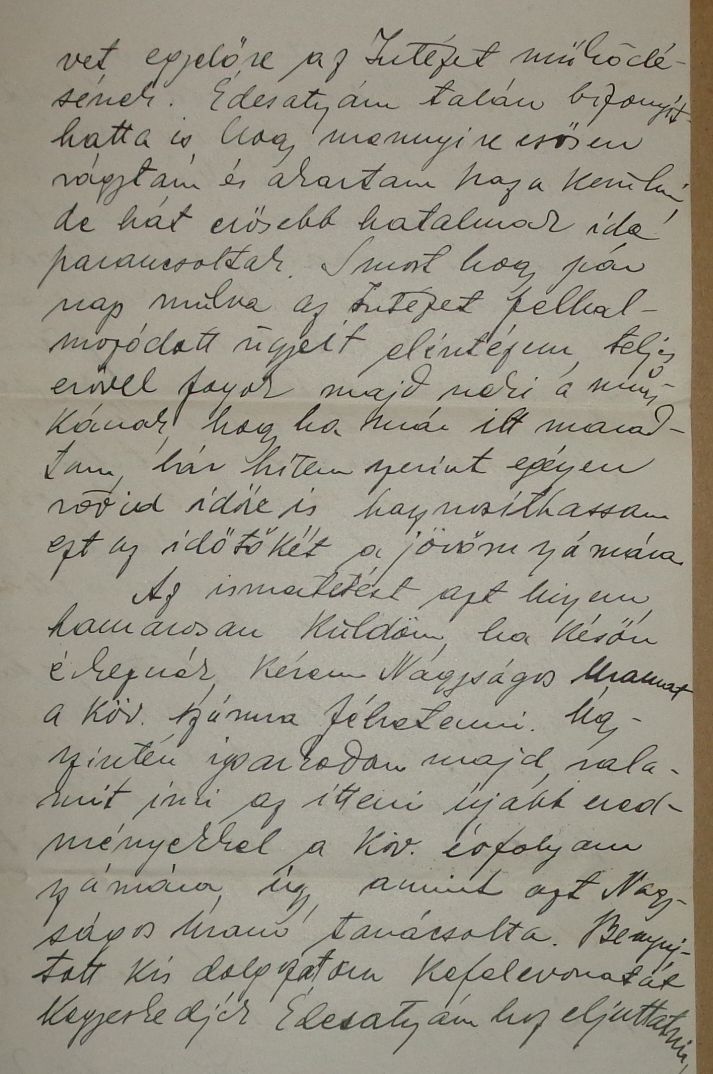 vet egyelőre az Intézet működé-
sének. Édesatyám talán bizonyít-
hatta is hogy mennyire erősen
vágytam és akartam haza kerülni,
de hát erősebb hatalmak ide
parancsoltak. S most hogy pár
nap mulva az Intézet felhal-
mozódott ügyeit elintézem, teljes
erővel fogok majd neki a mun-
kának, hogy ha már itt marad-
tam, bár hitem szerint egészen
rövid időre is hasznosíthassam
ezt az időtőkét a jövőm számára.
Az ismertetést azt hiszem,
hamarosan küldöm, ha későn
érkeznék, kérem Nagyságos Uramat
a köv. számra félretenni. Úgy-
szintén igyekezem majd, vala-
mit írni az itteni újabb ered-
ményekkel a köv. évfolyam
számára, úgy, amint azt Nagy-
ságos Uram tanácsolta. Benyuj-
tott kis dolgozatom kefelevonatát
kegyeskedjék Édesatyámhoz eljuttatni,